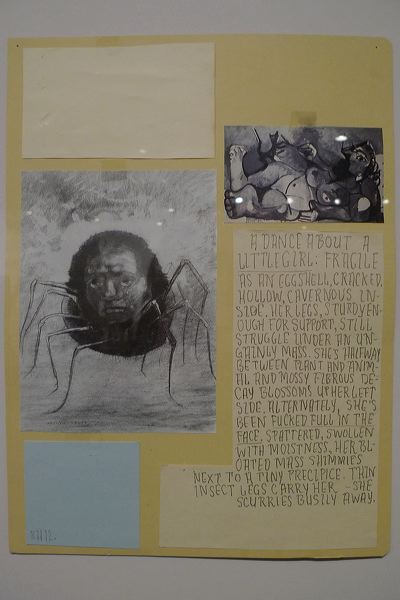 A DANCE ABOUT A
LITTLE GIRL: FRAGILE
AS AN EGGSHELL, CRACKED,
HOLLOW, CAVERNOUS IN-
SIDE. HER LEGS, STURDY EN-
OUGH FOR SUPPORT, STILL
STRUGGLE UNDER AN UN-
GAINLY MASS. SHE'S HALFWAY
BETWEEN PLANT AND ANIM-
AL AND MOSSY FIBROUS DE-
CAY BLOSSOMS UP HER LEFT
SIDE. ALTERNATELY, SHE'S
BEEN FUCKED FULL IN THE
FACE, SPATTERED, SWOLLEN
WITH MOISTNESS, HER BL-
OATED MASS SHIMMIES
NEXT TO A TINY PRECIPICE. THIN
INSECT LEGS CARRY HER - SHE
SCURRIES BUSILY AWAY.